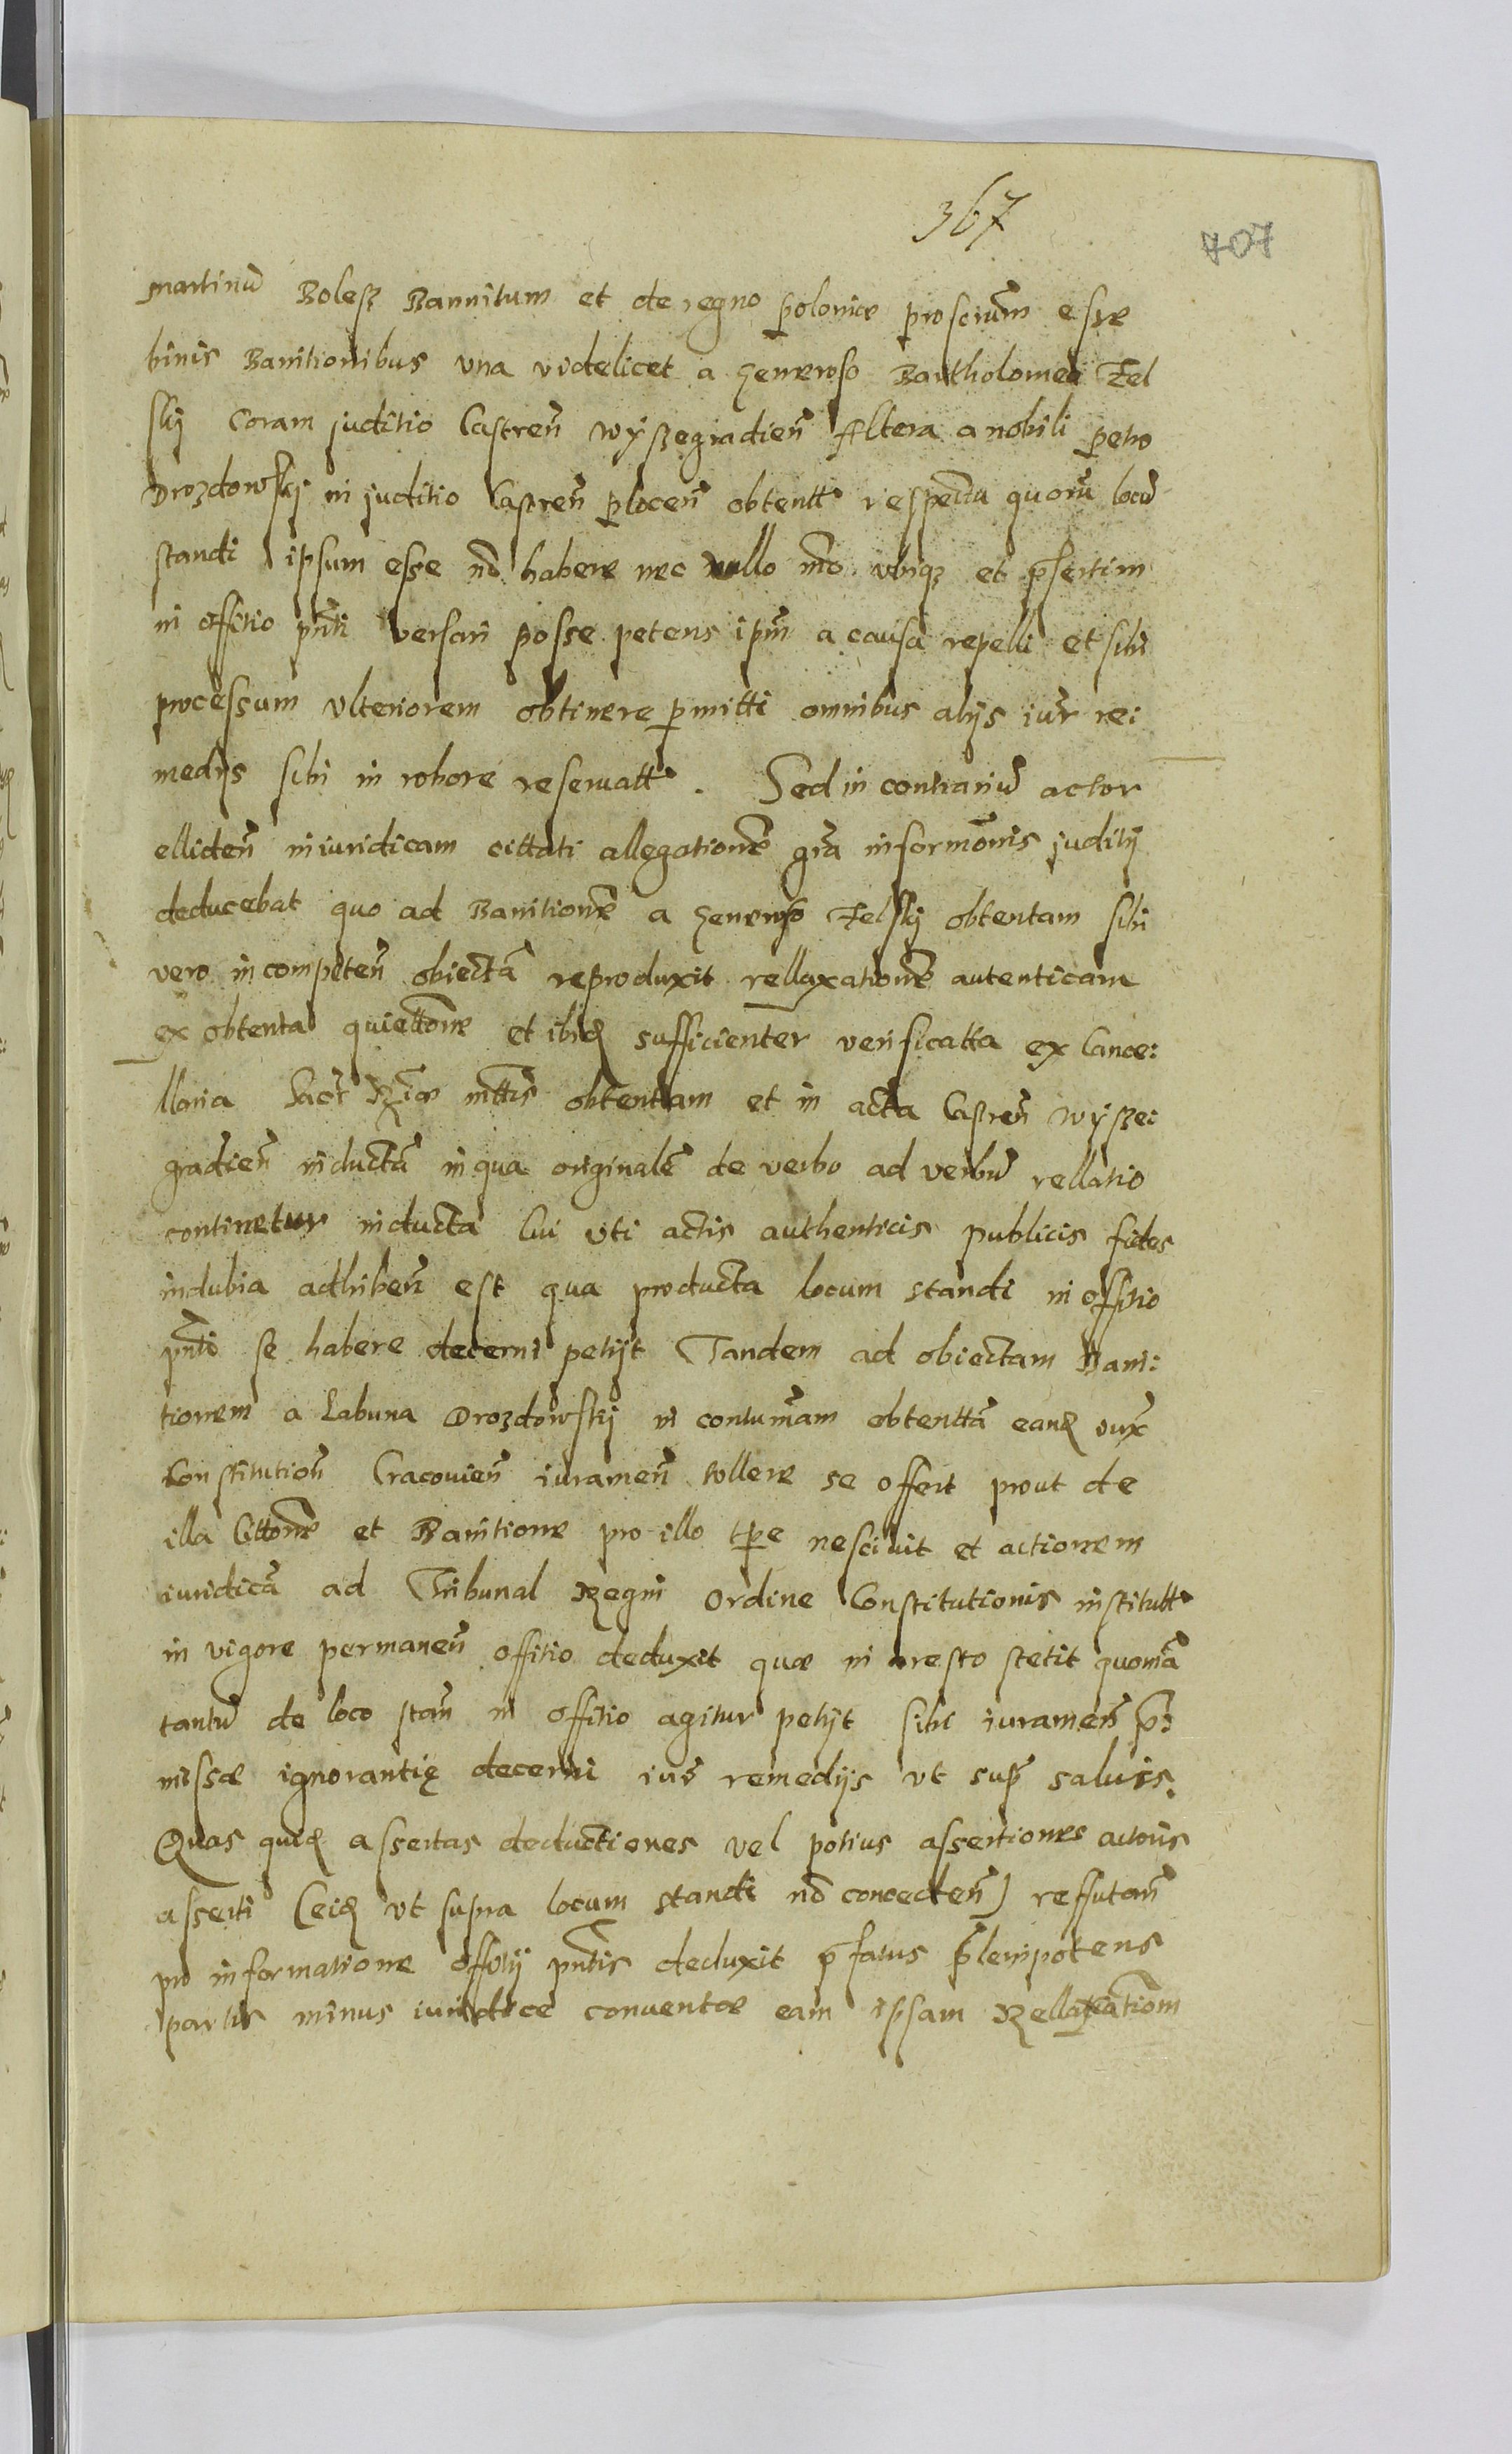 367
707
martinũ Bolesz Bannitum et de regno poloniæ proscium̃ esse
binis Banitionibus vna videlicet a generoso Bartholomeo Zel
skij Coram juditio Castren̄ wyszegradien̄ Altera a nobili petro
Drozdowskij in juditio Castren̄ plocen̄ obtentt respectu quorũ locũ
standi ipsum esse nō habere nec nullo mō vbiqz et p̄sertim
in offitio pn̄ti versari posse petens ipm̄ a causa repelli et sibi
processum vlteriorem obtinere p̄mitti omnibus alijs iur̄ re:
medijs sibi in robore reseruatt. Sed in contrariũ actor
elliden̄ iniuridicam cittati allegationē grā informōnis juditij
deducebat quo ad Banitionē a generoso Zelskij obtentam sibi
vero incompeten̄ obiectā reproduxit rellaxationē autenticam
ex obtenta quiettone et ibid sufficienter verificatta ex Cance:
llaria Sacr̄ Rīæ mttis obtentam et in acta Castren̄ wysze:
gradien̄ inductā in qua originalē de verbo ad verbũ rellatio
continetur inducta Cui vti actis authenticis publicis fides
indubia adhiben̄ est qua producta locum standi in offitio
pn̄ti se habere decerni petijt Tandem ad obiectam Bani:
tionem a Labuna Drozdowskij in contumām obtenttā eand iux̄
Constitution̄ Cracouien̄ iuramen̄ tollere se offert prout de
illa Cittone et Banitione pro illo tp̄e nesciuit et actionem
iuridicā ad Tribunal Regni ordine Constitutionis institutt
in vigore permanen̄ offitio deduxit quæ in aresto stetit quoniā
tantũ de loco stan̄ in offitio agitur petijt sibi iuramen̄ p̄:
missæ ignorantię decerni iur̄ remedijs vt sup̄ saluis.
Quas quid assertas deductiones vel potius assertiones actoris
asserti (eid vt supra locum standi nō conceden̄) reffutan̄
pro informatione offitij pn̄tis deduxit p̄fatus plenipotens
partis minus iuridice conuentæ eam ipsam Rellaxationm